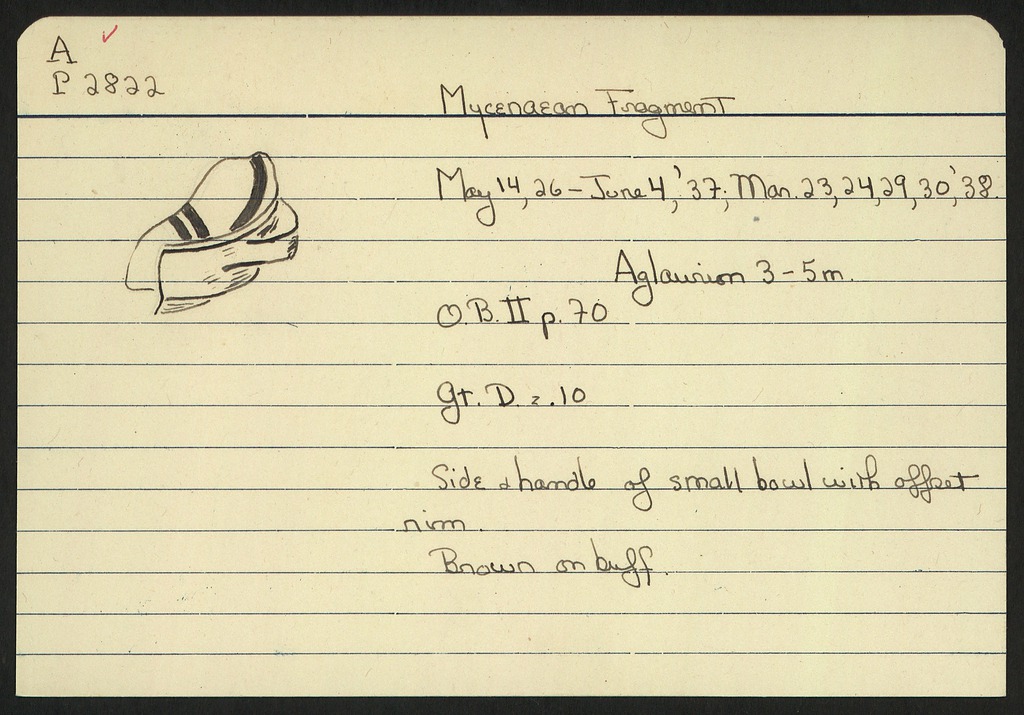 A
P 2822
Mycenaean Fragment
May 14, 26 - June 4, '37; Mar. 23, 24, 29, 30, '38.
Aglaurion 3-5m.
O.B. II p. 70
Gr. D. = .10
Side & handle of small bowl with offset
rim.
Brown on buff.